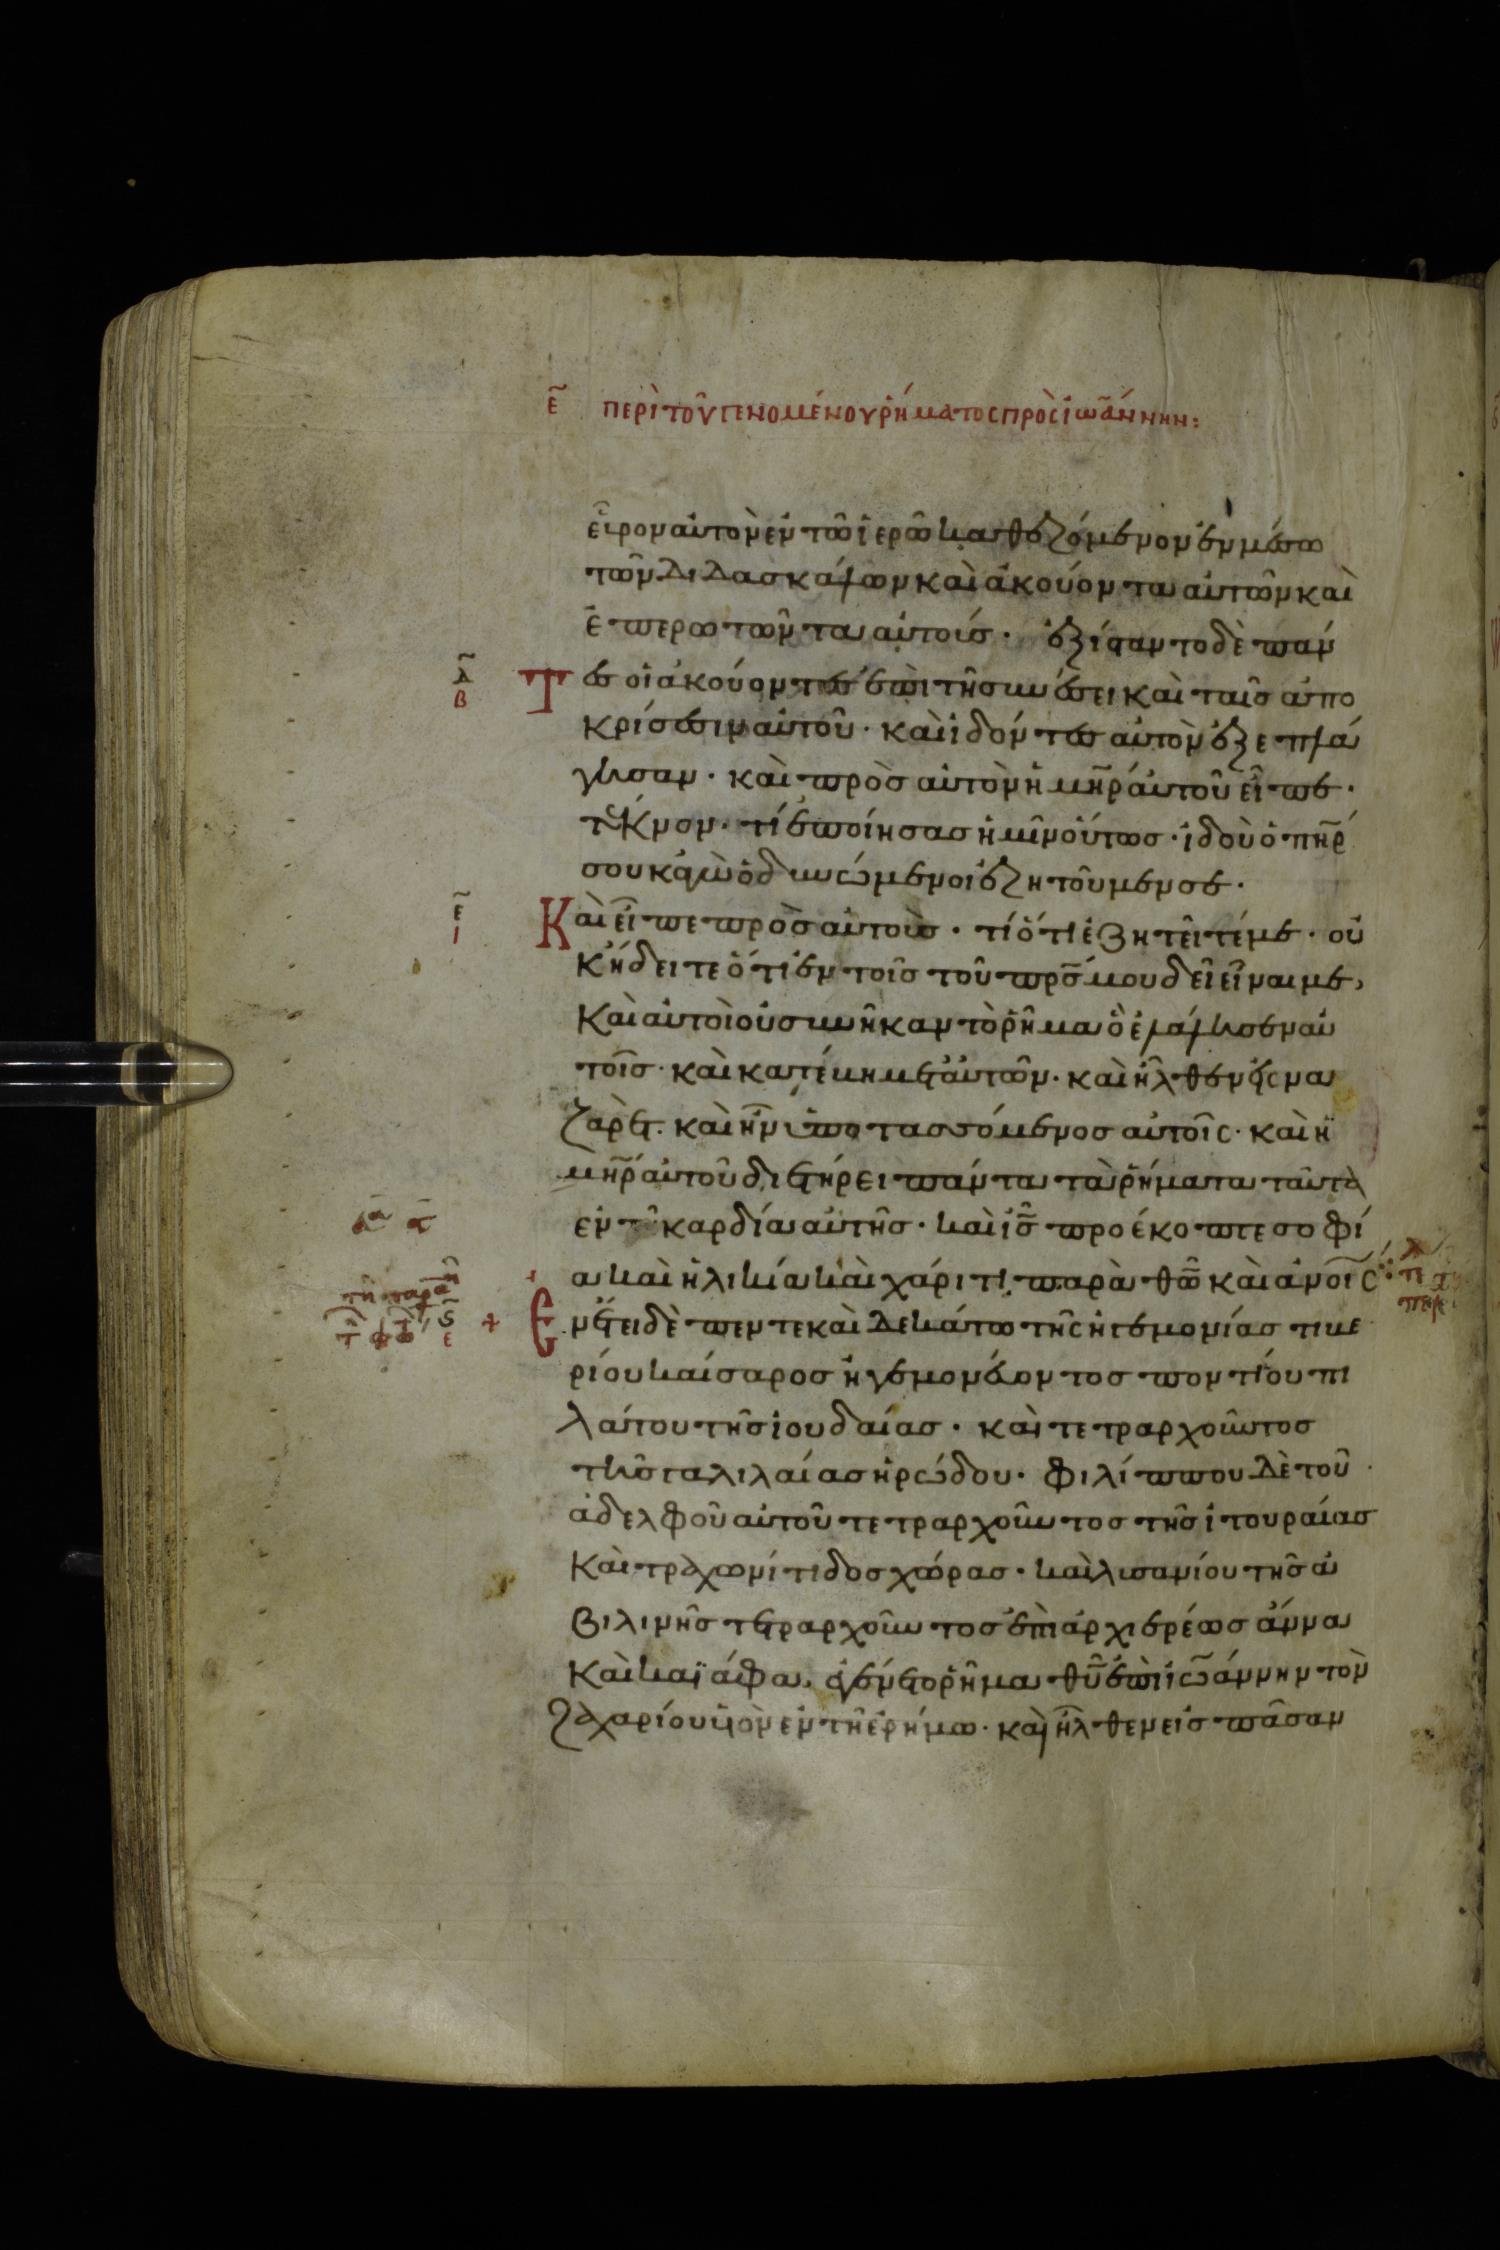 ε̄ περὶ τοῦ γενομένου ῥήματος πρὸς ἰωάννην:
εὗρον αὐτὸν ἐν τῶ ἱερῶ καθεζόμενον ἐν μέσω
τῶν διδασκάλων καὶ ἀκούοντα αὐτῶν καὶ
ἐπερωτῶντα αὐτούς· ἐξίσαντο δὲ πάν
δ̄ β Τες οἱ ἀκούοντες ἐπὶ τῆ συνέσει καὶ ταῖς ἀπο
κρίσεσιν αὐτοῦ· καὶ ἰδόντες αὐτὸν ἐξεπλά
γησαν· καὶ πρὸς αὐτὸν ἡ μη̅ρ αὐτοῦ εἶπε·
τέκνον· τί ἐποίησας ἡμῖν οὕτως· ἰδοὺ ὁ πη̅ρ
σου κἀγὼ ὀδυνώμενοι ἐζητοῦμεν σε·
ε̄ ι Καὶ εἶπε πρὸς αὐτούς· τί ὅτι ἐζητεῖτέ με· οὐ
κ ἤδειτε ὅτι ἐν τοῖς τοῦ πρ̅ς μου δεῖ εἶναι με,
Καὶ αὐτοὶ οὐ συνῆκαν τὸ ῥῆμα ὃ ἐλάλησεν αὐ
τοῖς· καὶ κατέβη μετ' αὐτῶν· καὶ ἦλθεν εἰς να
ζαρέτ· καὶ ἦν ὑποτασσόμενος αὐτοῖς· καὶ ἡ
μη̅ρ αὐτοῦ διετήρει πάντα τὰ ῥήματα ταῦτα
ἐν τῆ καρδία αὐτῆς· καὶ ι̅ς προέκοπτε σοφί
α καὶ ἡλικία καὶ χάριτι παρὰ θ̅ω καὶ ἀν̅οις
ς̄ ε + Ἐν ἔτει δὲ πεντεκαὶδεκάτω τῆς ἡγεμονίας τιβε
ρίου καίσαρος ἡγεμονεύοντος ποντίου πι
λάτου τῆς ἰουδαίας· καὶ τετραρχοῦντος
τῆς γαλιλαίας ἡρώδου· φιλίππου δὲ τοῦ
ἀδελφοῦ αὐτοῦ τετραρχοῦντος τῆς ἰτουραίας
Καὶ τραχωνίτιδος χώρας· καὶ λυσανίου τῆς ἀ
βιλινῆς τετραρχοῦντος ἐπὶ ἀρχιερέως ἄννα
Καὶ καϊάφα, ἐγένετο ῥῆμα θ̅υ ἐπὶ ἰωάννην τὸν
Ζαχαρίου υἱὸν ἐν τῆ ἐρήμω· καὶ ἦλθεν εἰς πᾶσαν